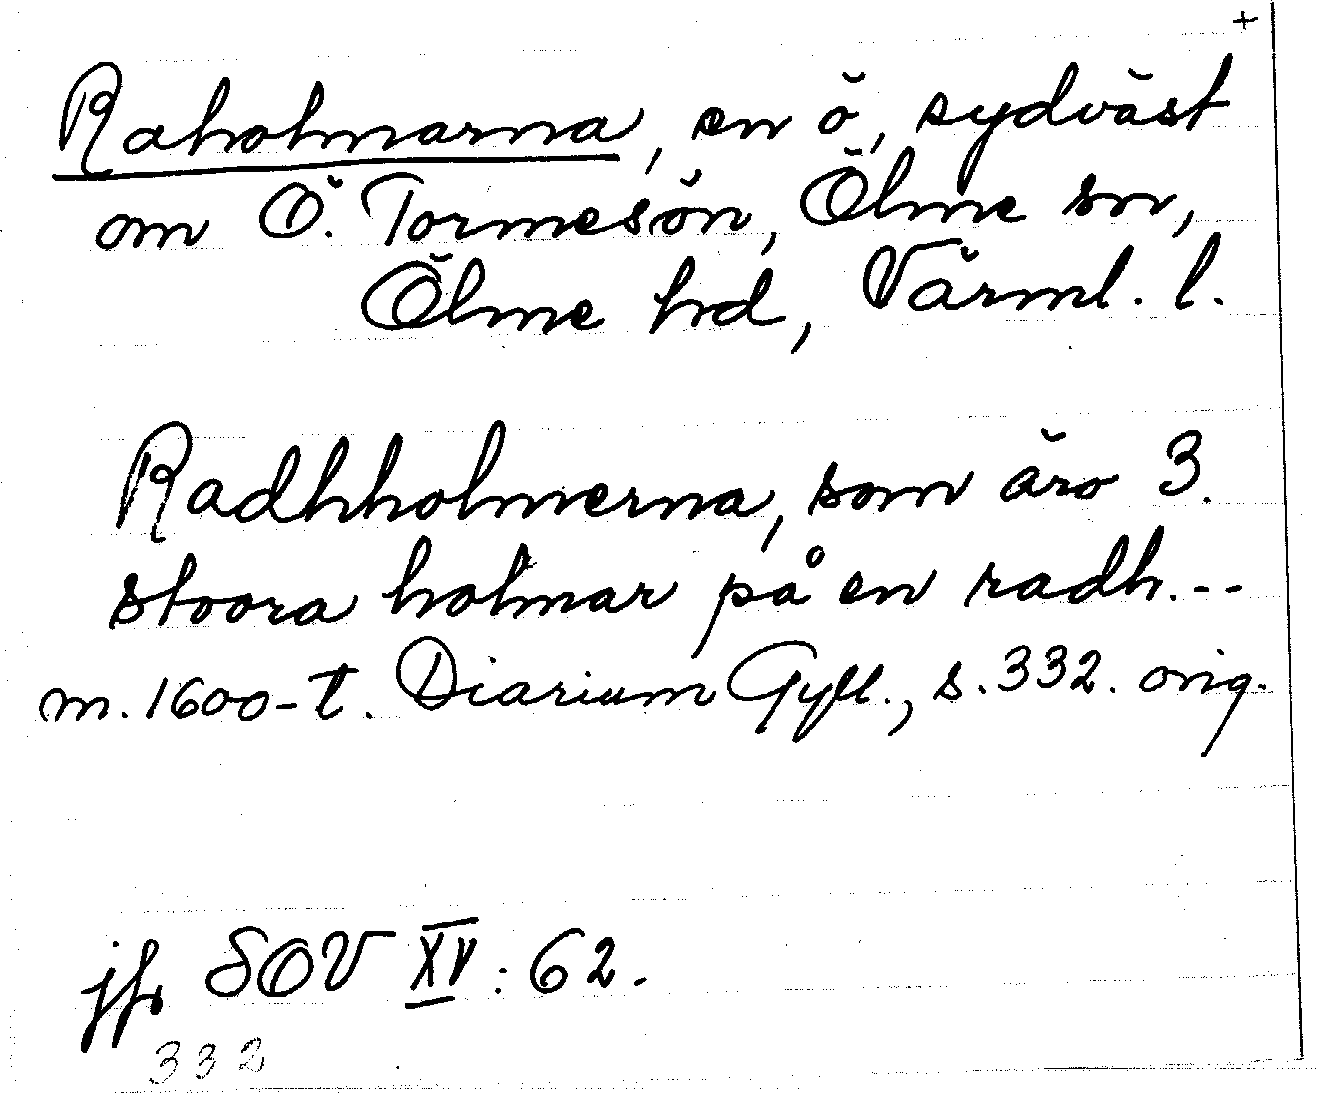 +
Raholmarna, en ö, sydväst
om Ö. Tormesön, Ölme sn,
Ölme hd, Värml. l.
Radhholmerna, som äro 3.
stoora holmar på en radh. --
m. 1600-t. Diarium Gyll., s. 332. orig.
jfr SOV XV: 62.
332